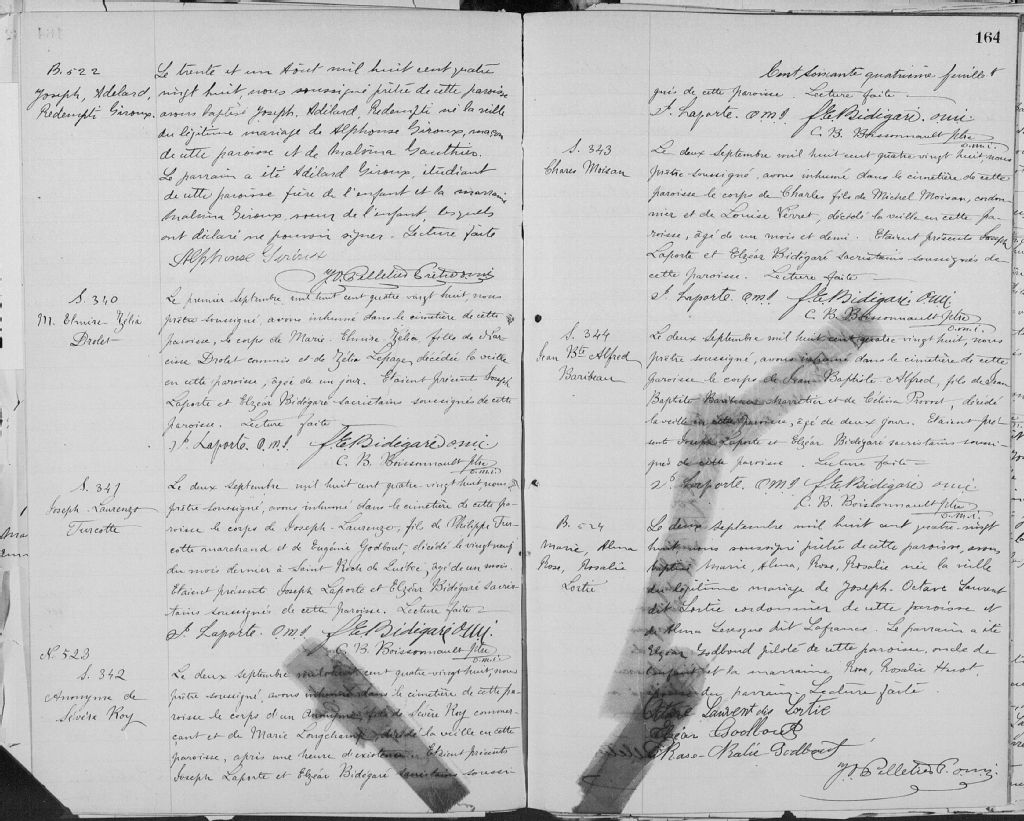 B. 522
Joseph, Adélard,
Rédempti Giroux.
Le trente et un Août mil huit cent quatre
vingt huit, nous soussigné prêtre de cette paroisse
avons baptisé Joseph, Adélard, Rédempti né la veille
du légitime mariage de Alphonse Giroux, maçon
de cette paroisse et de Malvina Gauthier.
Le parrain a été Adélard Giroux, étudiant
de cette paroisse frère de l'enfant et la marraine
Malvina Giroux, soeur de l'enfant, lesquels
ont déclaré ne pouvoir signer. Lecture faite
Alphonse Giroux
J. Pelletier Prêtre o.m.i.
S. 340
M. Elmire-Zélia
Drolet
Le premier Septembre mil huit cent quatre vingt huit, nous
prêtre soussigné, avons inhumé dans le cimetière de cette
paroisse, le corps de Marie-Elmire Zélia, fille de Nar-
cisse Drolet commis et de Zélia Lepage, décédée la veille
en cette paroisse, âgée de un jour. Etaient présents Joseph
Laporte et Elzéar Bidégaré sacristains soussignés de cette
paroisse. Lecture faite
Js. Laporte. O.M.I. f. E. Bidégaré o.m.i.
C. B. Boissonnault ptre
o.m.i.
S. 341
Joseph-Laurenzo
Turcotte
Le deux Septembre mil huit cent quatre vingt huit, nous
prêtre soussigné, avons inhumé dans le cimetière de cette pa-
roisse le corps de Joseph-Laurenzo, fils de Philippe Tur-
cotte marchand et de Eugénie Godbout, décédé le vingt neuf
du mois dernier à Saint Roch de Québec, âgé de un mois.
Etaient présents Joseph Laporte et Elzéar Bidégaré sacris-
tains soussignés de cette paroisse. Lecture faite
Js. Laporte. O.M.I. f. E. Bidégaré o.m.i.
C. B. Boissonnault ptre
o.m.i.
N. 523
S. 342
Anonyme de
Sévère Roy
Le deux Septembre mil huit cent quatre vingt huit, nous
prêtre soussigné, avons inhumé dans le cimetière de cette pa-
roisse le corps d'un Anonyme, fils de Sévère Roy commer-
çant et de Marie Longchamp, décédé la veille en cette
paroisse, après une heure d'existence. Etaient présents
Joseph Laporte et Elzéar Bidégaré sacristains soussi-
164
Cent soixante quatrième feuillet
gnés de cette paroisse. Lecture faite
Js. Laporte. O.M.I. f. E. Bidégaré o.m.i.
C. B. Boissonnault ptre
o.m.i.
S. 343
Charles Moisan
Le deux Septembre mil huit cent quatre vingt huit, nous
prêtre soussigné, avons inhumé dans le cimetière de cette
paroisse le corps de Charles fils de Michel Moisan, cordon-
nier et de Louise Verret, décédé la veille en cette pa-
roisse, âgé de un mois et demi. Etaient présents Joseph
Laporte et Elzéar Bidégaré sacristains soussignés de
cette paroisse. Lecture faite
Js. Laporte. O.M.I. f. E. Bidégaré o.m.i.
C. B. Boissonnault ptre
o.m.i.
S. 344
Jean Bte Alfred
Baribeau
Le deux Septembre mil huit cent quatre vingt huit, nous
prêtre soussigné, avons inhumé dans le cimetière de cette
paroisse le corps de Jean Baptiste Alfred, fils de Jean
Baptiste Baribeau charretier et de Célina, décédé
la veille en cette paroisse, âgé de deux jours. Etaient pré-
sents Joseph Laporte et Elzéar Bidégaré sacristains soussi-
gnés de cette paroisse. Lecture faite
Js. Laporte. O.M.I. f. E. Bidégaré o.m.i.
C. B. Boissonnault ptre
o.m.i.
B. 524
Marie, Alma
Rose, Rosalie
Lortie
Le deux Septembre mil huit cent quatre vingt
huit nous soussigné prêtre de cette paroisse, avons
baptisé Marie, Alma, Rose, Rosalie née la veille
du légitime mariage de Joseph Octave Laurent
dit Lortie cordonnier de cette paroisse et
de Alma Levesque dit Lafrance. Le parrain a été
Elzéar Godbout pilote de cette paroisse, oncle de
l'enfant et la marraine Rose, Rosalie
épouse du parrain. Lecture faite
Octave Laurent dis Lortie
Elzéar Godbout
Rose-Zalie Godbout
J. Pelletier P. o.m.i.